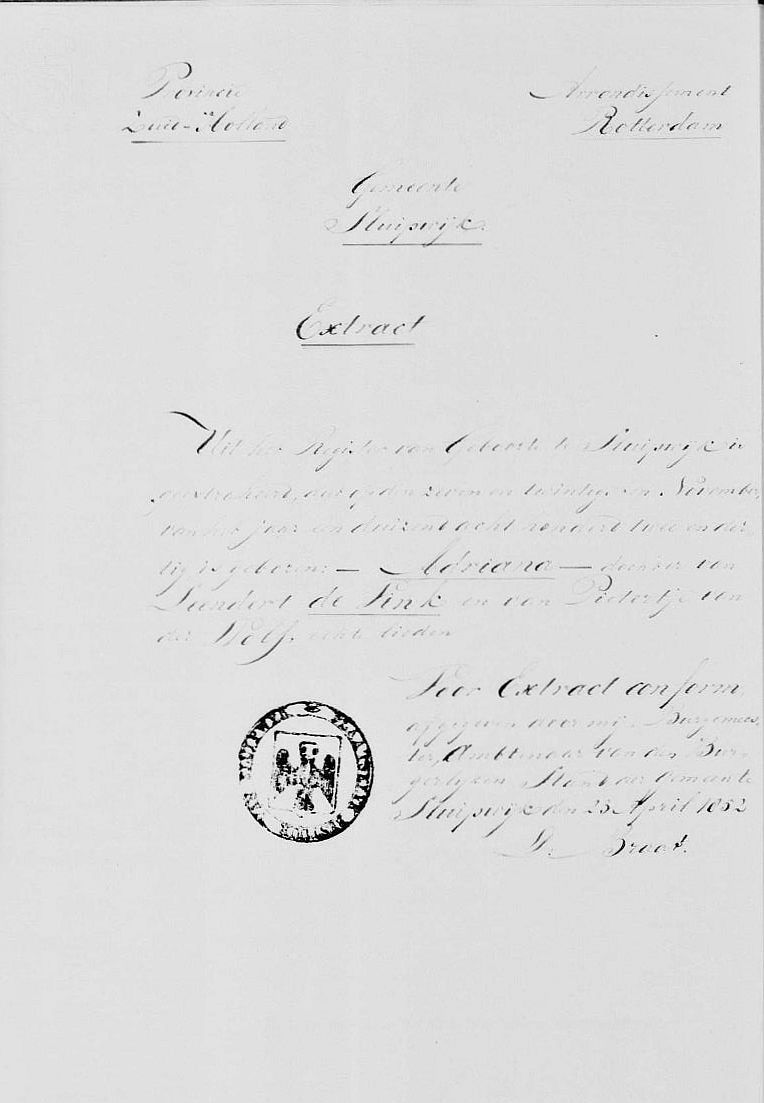 Provincie
Zuid-Holland
Arrondissement
Rotterdam
Gemeente
Sluipwijk.
Extract
Uit het Register van Geboorte te Sluipwijk is
geextraheert, dat op den zeven en twintigsten November,
van het jaar een duizent acht hondert twee en der-
tig is geboren: — Adriana — dochter van
Leendert de Vink en van Pietertje van
der Wolf. echte lieden
Voor Extract conform,
afgegeven door mij. Burgemees-
ter, Ambtenaar van den Bur-
gerlijken Stant der Gemeente
Sluipwijk den 23 April 1852
PLAATSELYK BESTUUR VAN SLUIPWYK